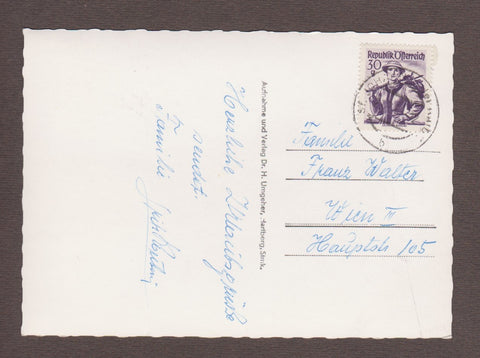 Herzliche Urlaubsgrüsse
sendet
F
Familie
Aufnahme und Verlag Dr. H. Umgeher, Hartberg, Stmk.
Republik Österreich
30
g
Familie
Franz Walter
Wien III
Hauptstr 105